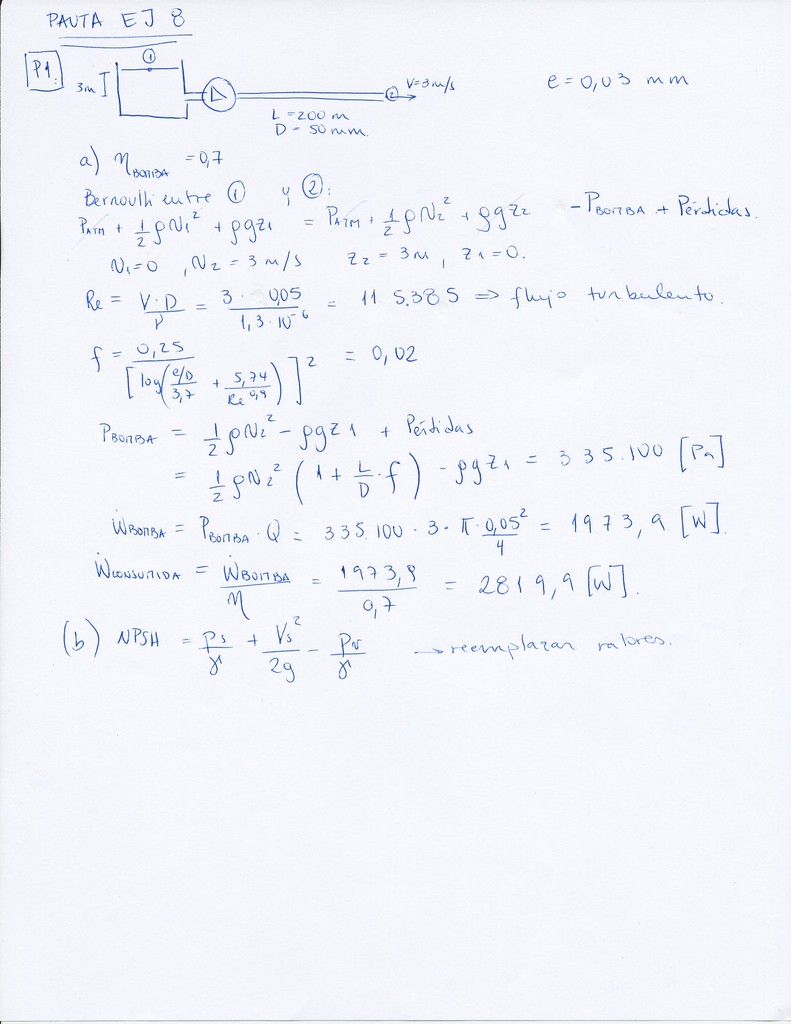 PAUTA EJ 8
P1.
①
3m
② V=3m/s
e = 0,03 mm
L = 200 m
D = 50 mm.
a) η BOMBA = 0,7
Bernoulli entre ① y ②:
PATM + 1/2 ρV1² + ρgz1 = PATM + 1/2 ρV2² + ρgz2 - PBOMBA + Pérdidas.
V1=0 , V2 = 3 m/s z2 = 3m , z1 = 0.
Re = V·D/ν = 3 · 0,05/1,3·10⁻⁶ = 115.385 ⇒ flujo turbulento.
f = 0,25/[log(e/D/3,7 + 5,74/Re^0,9)]² = 0,02
PBOMBA = 1/2 ρV2² - ρgz1 + Pérdidas
= 1/2 ρV2² (1 + L/D · f) - ρgz1 = 335.100 [Pa]
ẆBOMBA = PBOMBA · Q = 335.100 · 3 · π · 0,05²/4 = 1973,9 [W].
ẆCONSUMIDA = ẆBOMBA/η = 1973,9/0,7 = 2819,9 [W].
(b) NPSH = Ps/γ + Vs²/2g - Pv/γ → reemplazar valores.